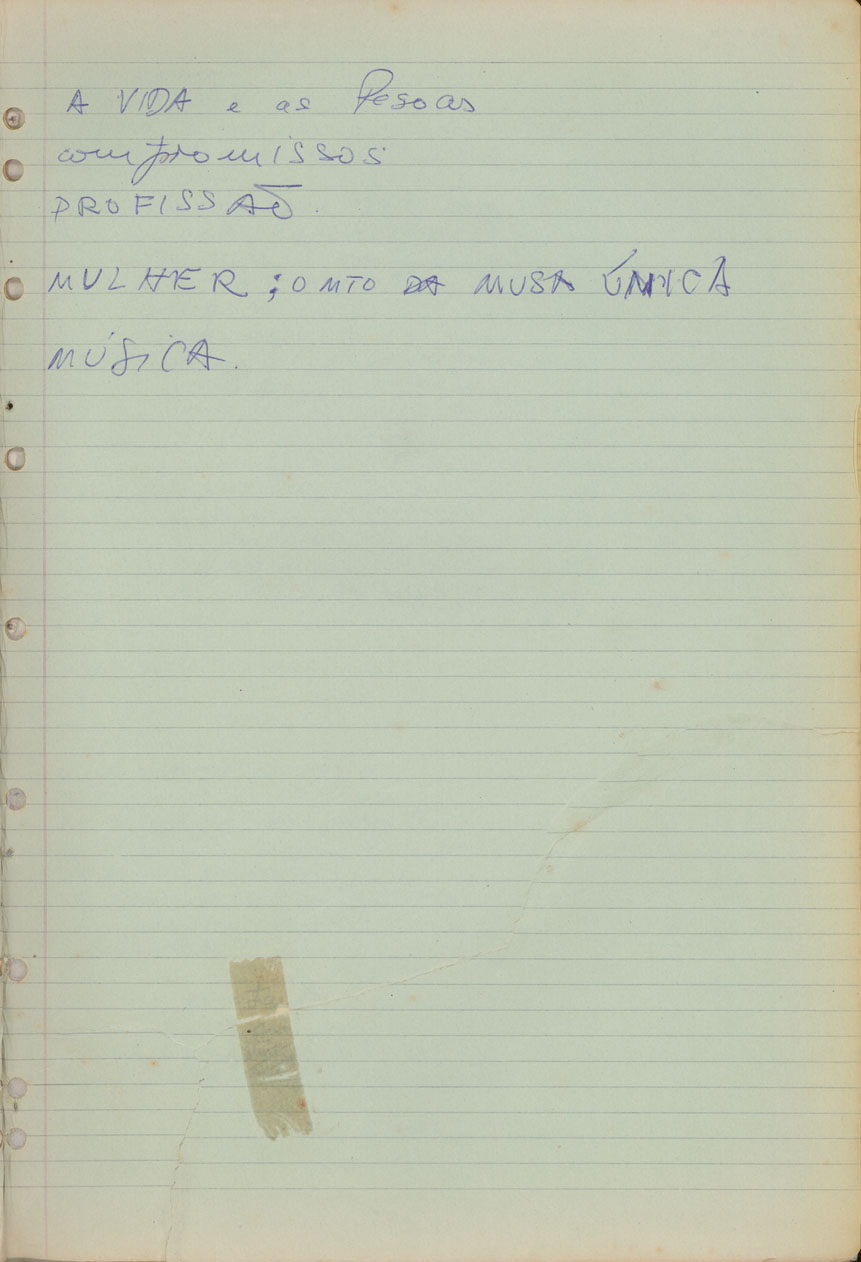 A VIDA e as Pesoas
compromissos
PROFISSÃO.
MULHER; O MTO DA MUSA ÚNICA
MÚSICA.